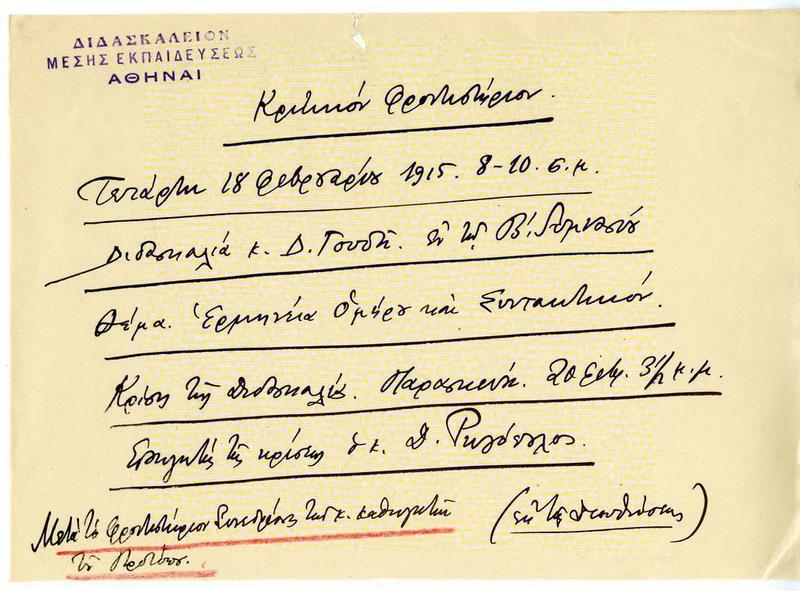 ΔΙΔΑΣΚΑΛΕΙΟΝ
ΜΕΣΗΣ ΕΚΠΑΙΔΕΥΣΕΩΣ
ΑΘΗΝΑΙ
Κριτικόν Φροντιστήριον.
Τετάρτη 18 Φεβρουαρίου 1915. 8-10. π.μ.
Διδασκαλία κ. Δ. Γουδή. ἐν τῇ Β΄. Γυμνασίου
Θέμα. Ἑρμηνεία Ὁμήρου καὶ Συντακτικόν.
Κρίσις τῆς διδασκαλίας. Παρασκευή. 20 Φεβρ. 3 1/2 μ.μ.
Εἰσηγητὴς τῆς κρίσεως ὁ κ.
Μετὰ τὸ φροντιστήριον Συνεδρίασις τῶν κ. καθηγητῶν (ἐκ τῆς διευθύνσεως)
τοῦ Προτύπου.